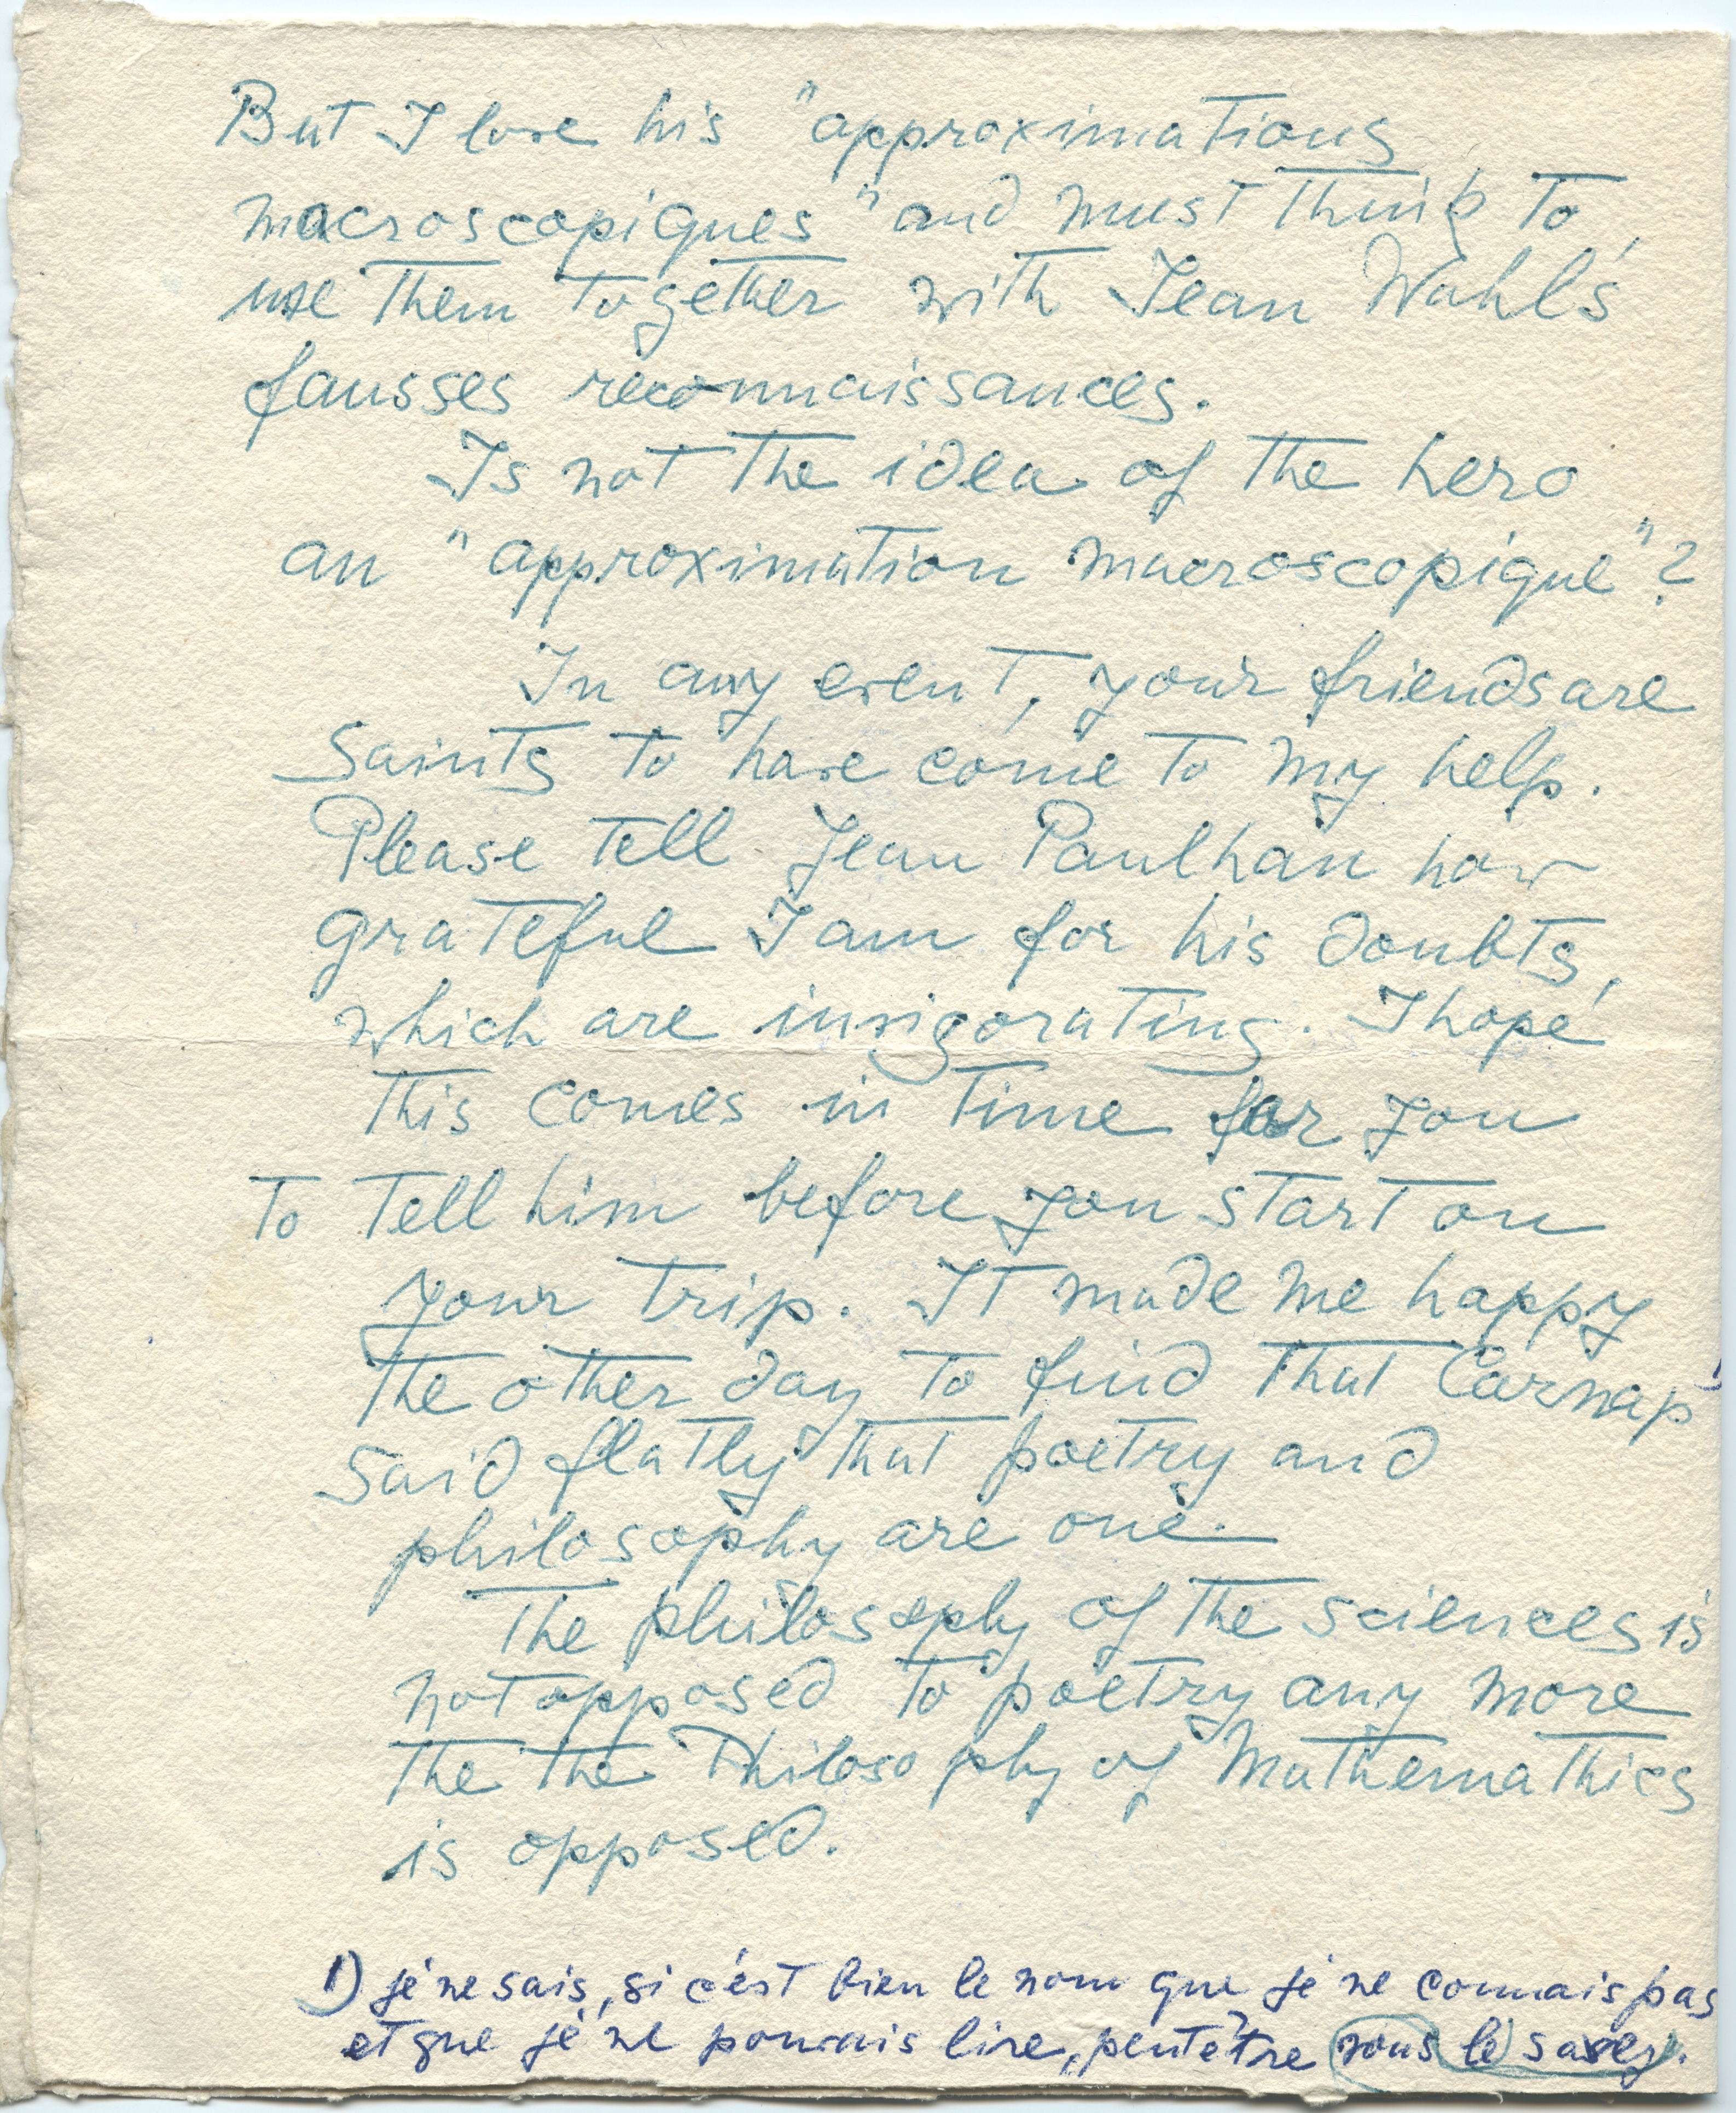 But I love his "approximations
macroscopiques" and must think to
use them together with Jean Wahl's
fausses reconnaissances.
Is not the idea of the hero
an "approximation macroscopique"?
In any event, your friends are
Saints to have come to my help.
Please tell Jean Paulhan how
grateful I am for his doubts,
which are invigorating. I hope
this comes in time for you
to tell him before you start on
your trip. It made me happy
the other day to find that Carnap 1)
said flatly that poetry and
philosophy are one.
The philosophy of the sciences is
not opposed to poetry any more
the the Philosophy of Mathemathics
is opposed.
1) je ne sais, si c'est bien le nom que je ne connais pas
et que je ne pouvais lire, peutêtre vous le savez.